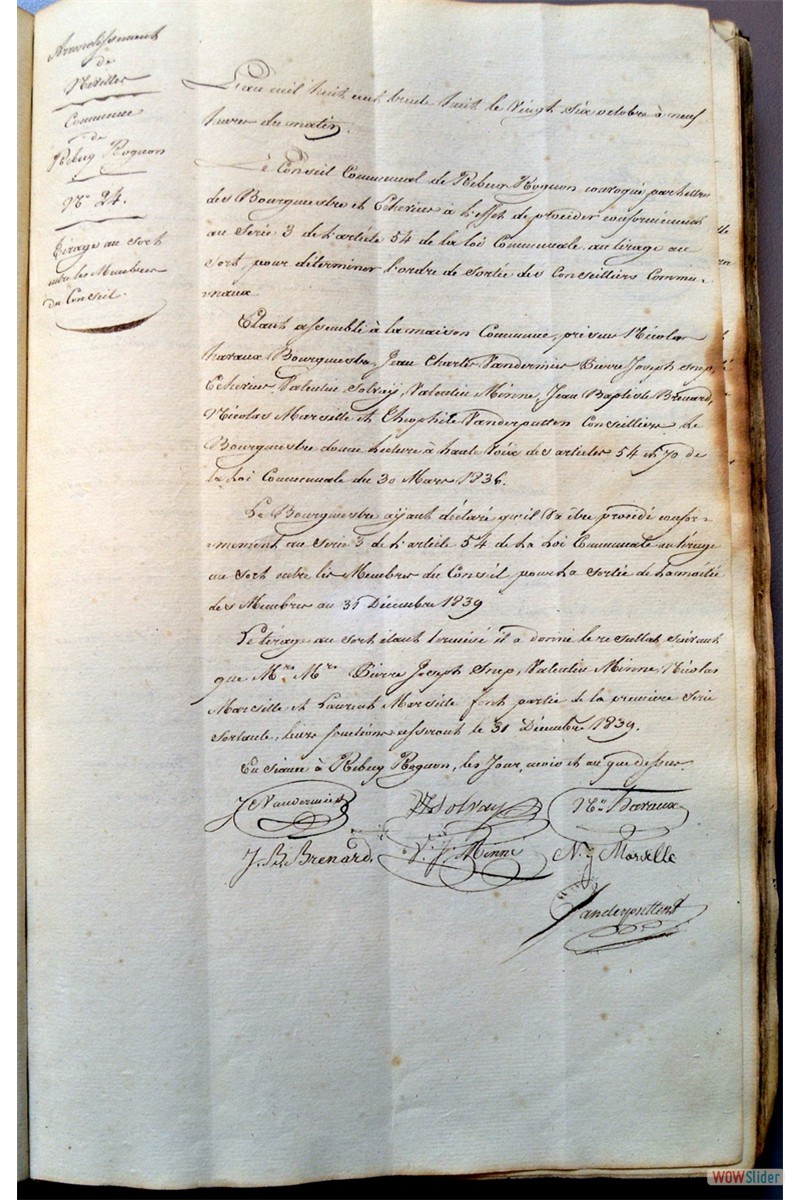 Arrondissement
de
Nivelles
Commune
de
Rebecq Rognon
N° 24.
Tirage au sort
entre les Membres
du Conseil.
L'an mil huit cent trente huit le vingt six octobre à neuf
heures du matin.
Le Conseil Communal de Rebecq Rognon convoqué par lettre
des Bourguestre et Echevins à l'effet de procéder conformément
au Serie 3 de l'article 54 de la loi Communale au tirage au
sort pour déterminer l'ordre de sortie des Conseilliers Commu-
-naux
Etant assemblé à la maison Commune, présens Nicolas
havaux Bourguestre, Jean Charles Vandermies Pierre Joseph Snep,
Echevins, Valentin Solvaÿ, Valentin Minne, Jean Baptiste Brenard,
Nicolas Marsille et Théophile Vanderputten Conseilliers. Le
Bourguestre donne lecture à haute voix des articles 54 et 70 de
la Loi Communale du 30 Mars 1836.
Le Bourguestre aÿant déclaré qu'il va être procédé confor-
-mément au Serie 3 de l'article 54 de la Loi Communale au tirage
au sort entre les Membres du Conseil pour la Sortie de la moitié
des Membres au 31 Décembre 1839
Le tirage au sort étant terminé il a donné le resultat suivant
que Mrs Mrs Pierre Joseph Snep, Valentin Minne, Nicolas
Marsille et Laurent Marsille font partie de la première Serie
Sortante, leurs fonctions cesseront le 31 Décembre 1839.
En séance à Rebecq Rognon, les Jour, mois et an que dessus.
J C Vandermies V Solvay Ns havaux
J. B. Brenard. V. J. Minne N. J Marsille
Vanderputten t
WOWSlider